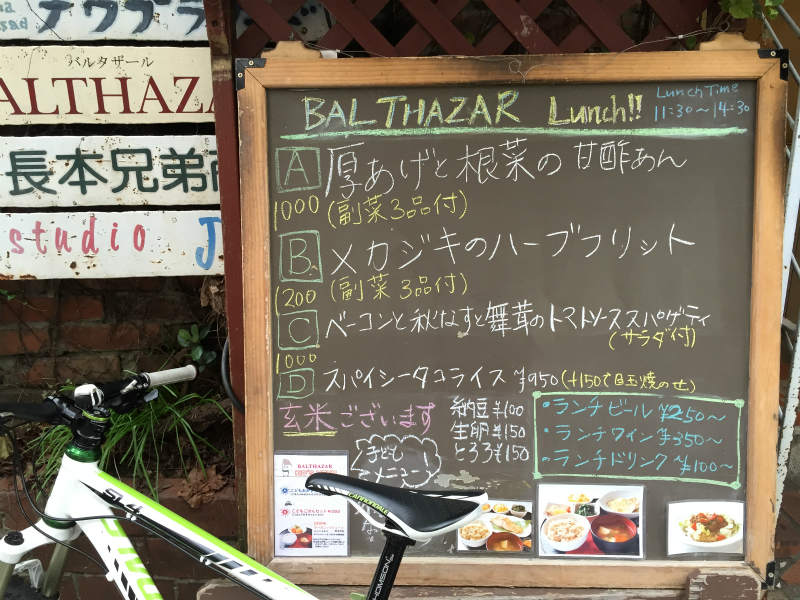 テラブラ
バルタザール
BALTHAZA
長本兄弟
studio J
BALTHAZAR Lunch!!
Lunch Time
11:30〜14:30
A 厚あげと根菜の甘酢あん
1000 (副菜3品付)
B メカジキのハーブフリット
1200 (副菜3品付)
C ベーコンと秋なすと舞茸のトマトソーススパゲティ
1000 (サラダ付)
D スパイシータコライス ¥950 (+150で目玉焼のせ)
玄米ございます
納豆 ¥100
生卵 ¥150
とろろ ¥150
・ランチビール ¥250〜
・ランチワイン ¥350〜
・ランチドリンク ¥100〜
子ども
メニュー!
BALTHAZAR
SL4
cannondale
THOMSON